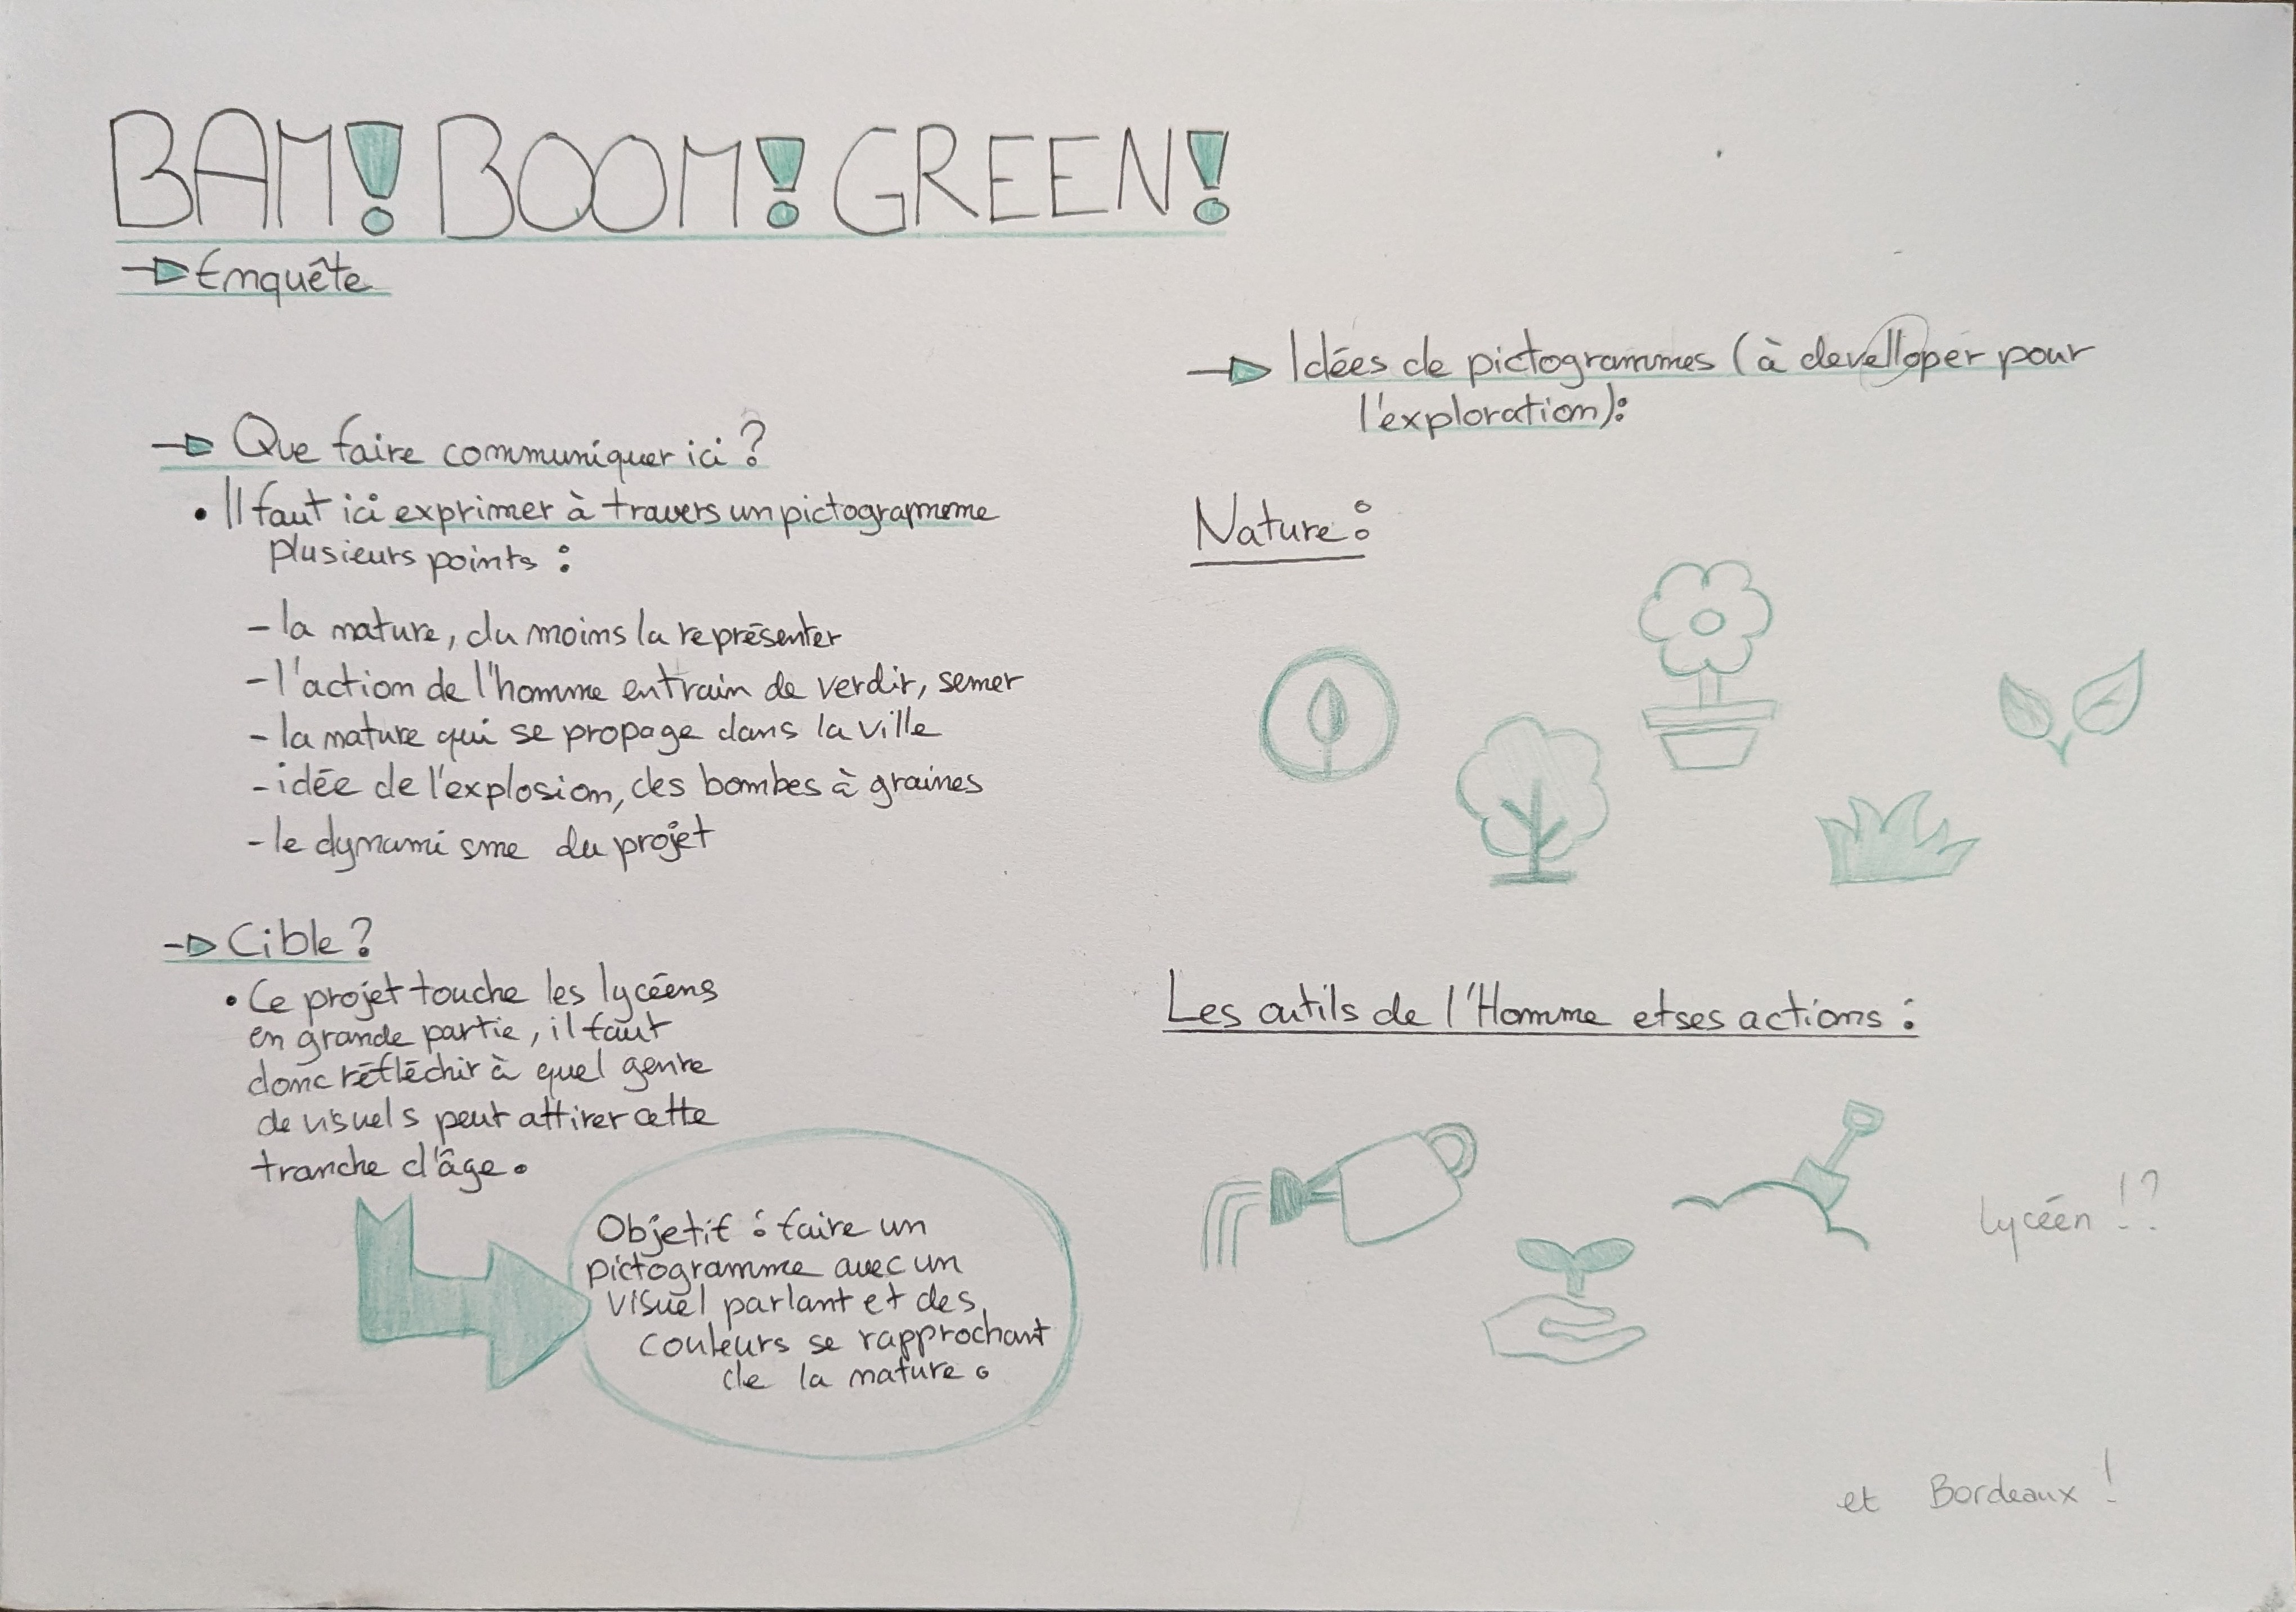 BAM! BOOM! GREEN!
Enquête
Que faire communiquer ici ?
• Il faut ici exprimer à travers un pictogramme
plusieurs points :
- la nature, du moins la représenter
- l'action de l'homme entrain de verdir, semer
- la nature qui se propage dans la ville
- idée de l'explosion, des bombes à graines
- le dynamisme du projet
Cible ?
• Ce projet touche les lycéens
en grande partie, il faut
donc réfléchir à quel genre
de visuels peut attirer cette
tranche d'âge.
Objetif : faire un
pictogramme avec un
visuel parlant et des
couleurs se rapprochant
de la nature.
Idées de pictogrammes (à develloper pour
l'exploration):
Nature :
Les outils de l'Homme et ses actions :
Lycéen !?
et Bordeaux !